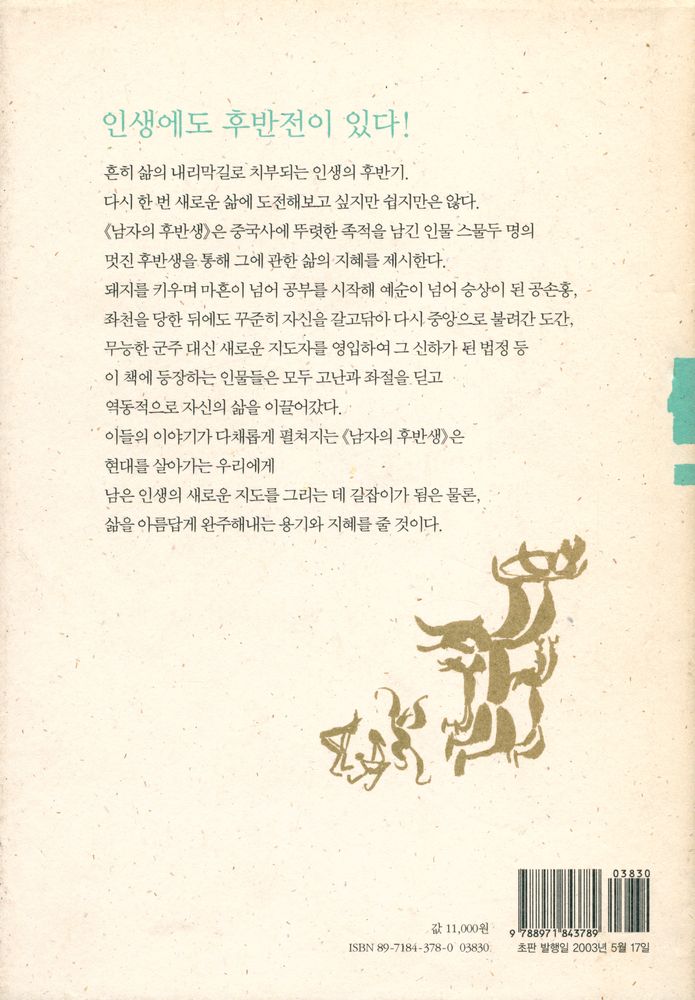 인생에도 후반전이 있다!
흔히 삶의 내리막길로 치부되는 인생의 후반기.
다시 한 번 새로운 삶에 도전해보고 싶지만 쉽지만은 않다.
《남자의 후반생》은 중국사에 뚜렷한 족적을 남긴 인물 스물두 명의
멋진 후반생을 통해 그에 관한 삶의 지혜를 제시한다.
돼지를 키우며 마흔이 넘어 공부를 시작해 예순이 넘어 승상이 된 공손홍,
좌천을 당한 뒤에도 꾸준히 자신을 갈고닦아 다시 중앙으로 불려간 도간,
무능한 군주 대신 새로운 지도자를 영입하여 그 신하가 된 법정 등
이 책에 등장하는 인물들은 모두 고난과 좌절을 딛고
역동적으로 자신의 삶을 이끌어갔다.
이들의 이야기가 다채롭게 펼쳐지는 《남자의 후반생》은
현대를 살아가는 우리에게
남은 인생의 새로운 지도를 그리는 데 길잡이가 됨은 물론,
삶을 아름답게 완주해내는 용기와 지혜를 줄 것이다.
03830
값 11,000원
9 788971 843789
ISBN 89-7184-378-0 03830
초판 발행일 2003년 5월 17일